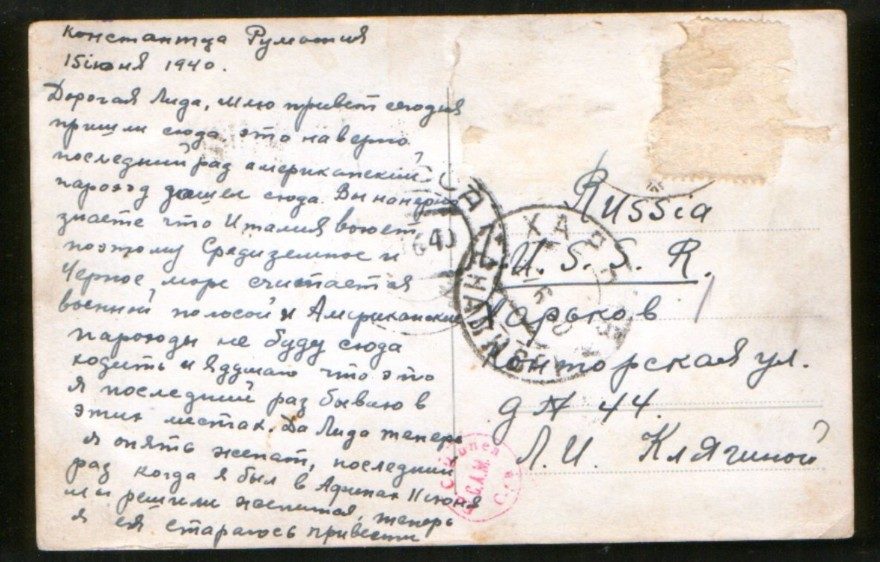 Констанца Румыния
15 июня 1940.
Дорогая Лида, шлю привет сегодня
пришли сюда это наверно
последний раз американский
пароход зашел сюда. Вы наверно
знаете что Италия воюет
поэтому Средиземное и
Черное море считается
военной полосой и Американские
пароходы не буду сюда
ходить и я думаю что это
я последний раз бываю в
этих местах. Да Лида теперь
я опять женат, последний
раз когда я был в Афинах 11 июня
мы решили жениться, теперь
я ей стараюсь привести
Russia
U. S. S. R.
Харьков
Конторская ул.
д № 44.
Л. И. Клягиной
ХАРЬКОВ
640